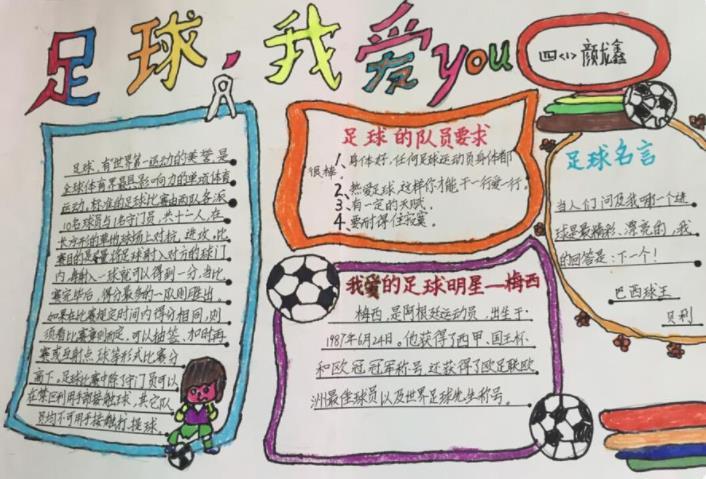 足球，我爱you
四<1>颜龙鑫
足球，有世界第一运动的美誉，是
全球体育界最具影响力的单项体育
运动。标准的足球比赛由两队各派
10名球员与1名守门员，共十一人，在
长方形的草地球场上对抗、进攻。比
赛目的是尽量将足球射入对方的球门
内，每射入一球就可以得到一分，当比
赛完毕后，得分最多的一队则胜出。
如果在比赛规定时间内得分相同，则
须看比赛章则而定，可以抽签、加时再
赛或互射点球等形式比赛分
高下。足球比赛中除了守门员可以
在禁区利用手部接触球，其它队
员均不可用手接触打球。
足球的队员要求
1、身体好，任何足球运动员身体都
很棒。
2、热爱足球，这样你才能干一行爱一行。
3、有一定的天赋。
4、要耐得住寂寞。
我爱的足球明星—梅西
梅西，是阿根廷运动员，出生于
1987年6月24日。他获得了西甲、国王杯
和欧冠冠军称号，还获得了欧足联欧
洲最佳球员以及世界足球先生称号。
足球名言
当人们问及我哪一个进
球是最精彩、漂亮的，我
的回答是：下一个！
巴西球王
贝利